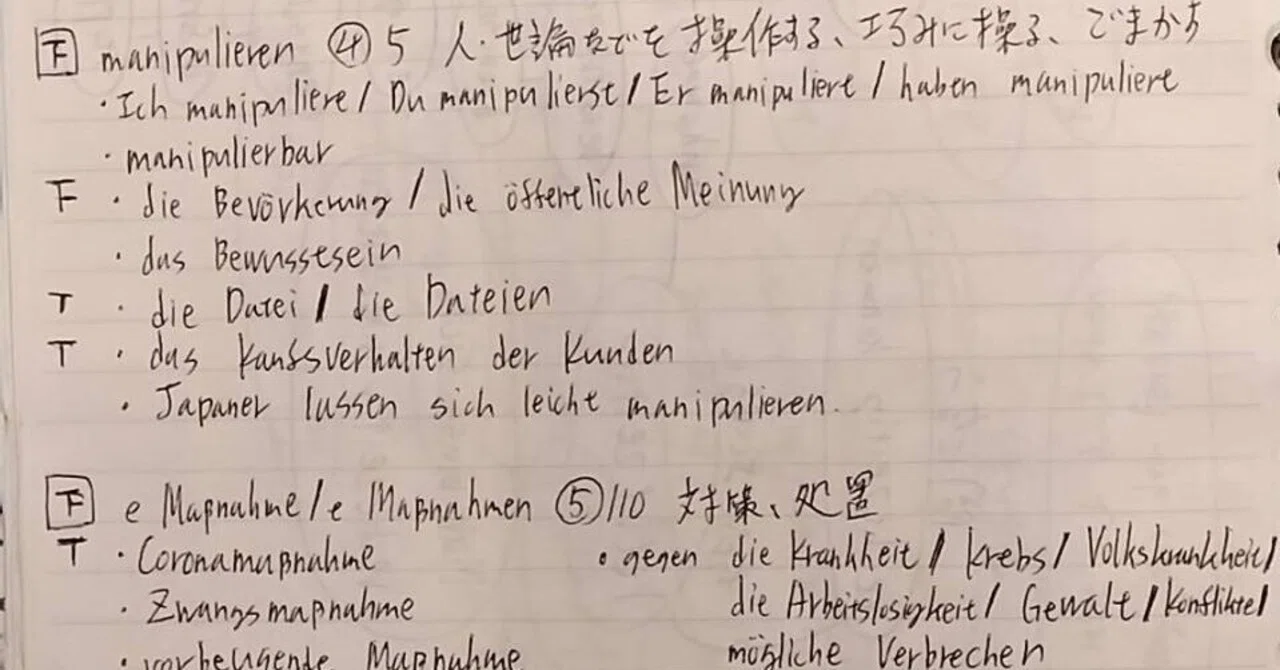 F manipulieren ④ 5 人・世論などを操作する、巧みに操る、ごまかす
・Ich manipuliere / Du manipulierst / Er manipuliert / haben manipuliere
・manipulierbar
F ・die Bevörkerung / die öffentliche Meinung
・das Bewusstsesein
T ・die Datei / die Dateien
T ・das Kaufsverhalten der Kunden
・Japaner lassen sich leicht manipulieren.
F e Maßnahme / e Maßnahmen ⑤/10 対策、処置
T ・Coronamaßnahme
・gegen die Krankheit / Krebs / Volkskrankheit /
・Zwangsmaßnahme
die Arbeitslosigkeit / Gewalt / Konflikte /
・vorbeugende Maßnahme
mögliche Verbrechen